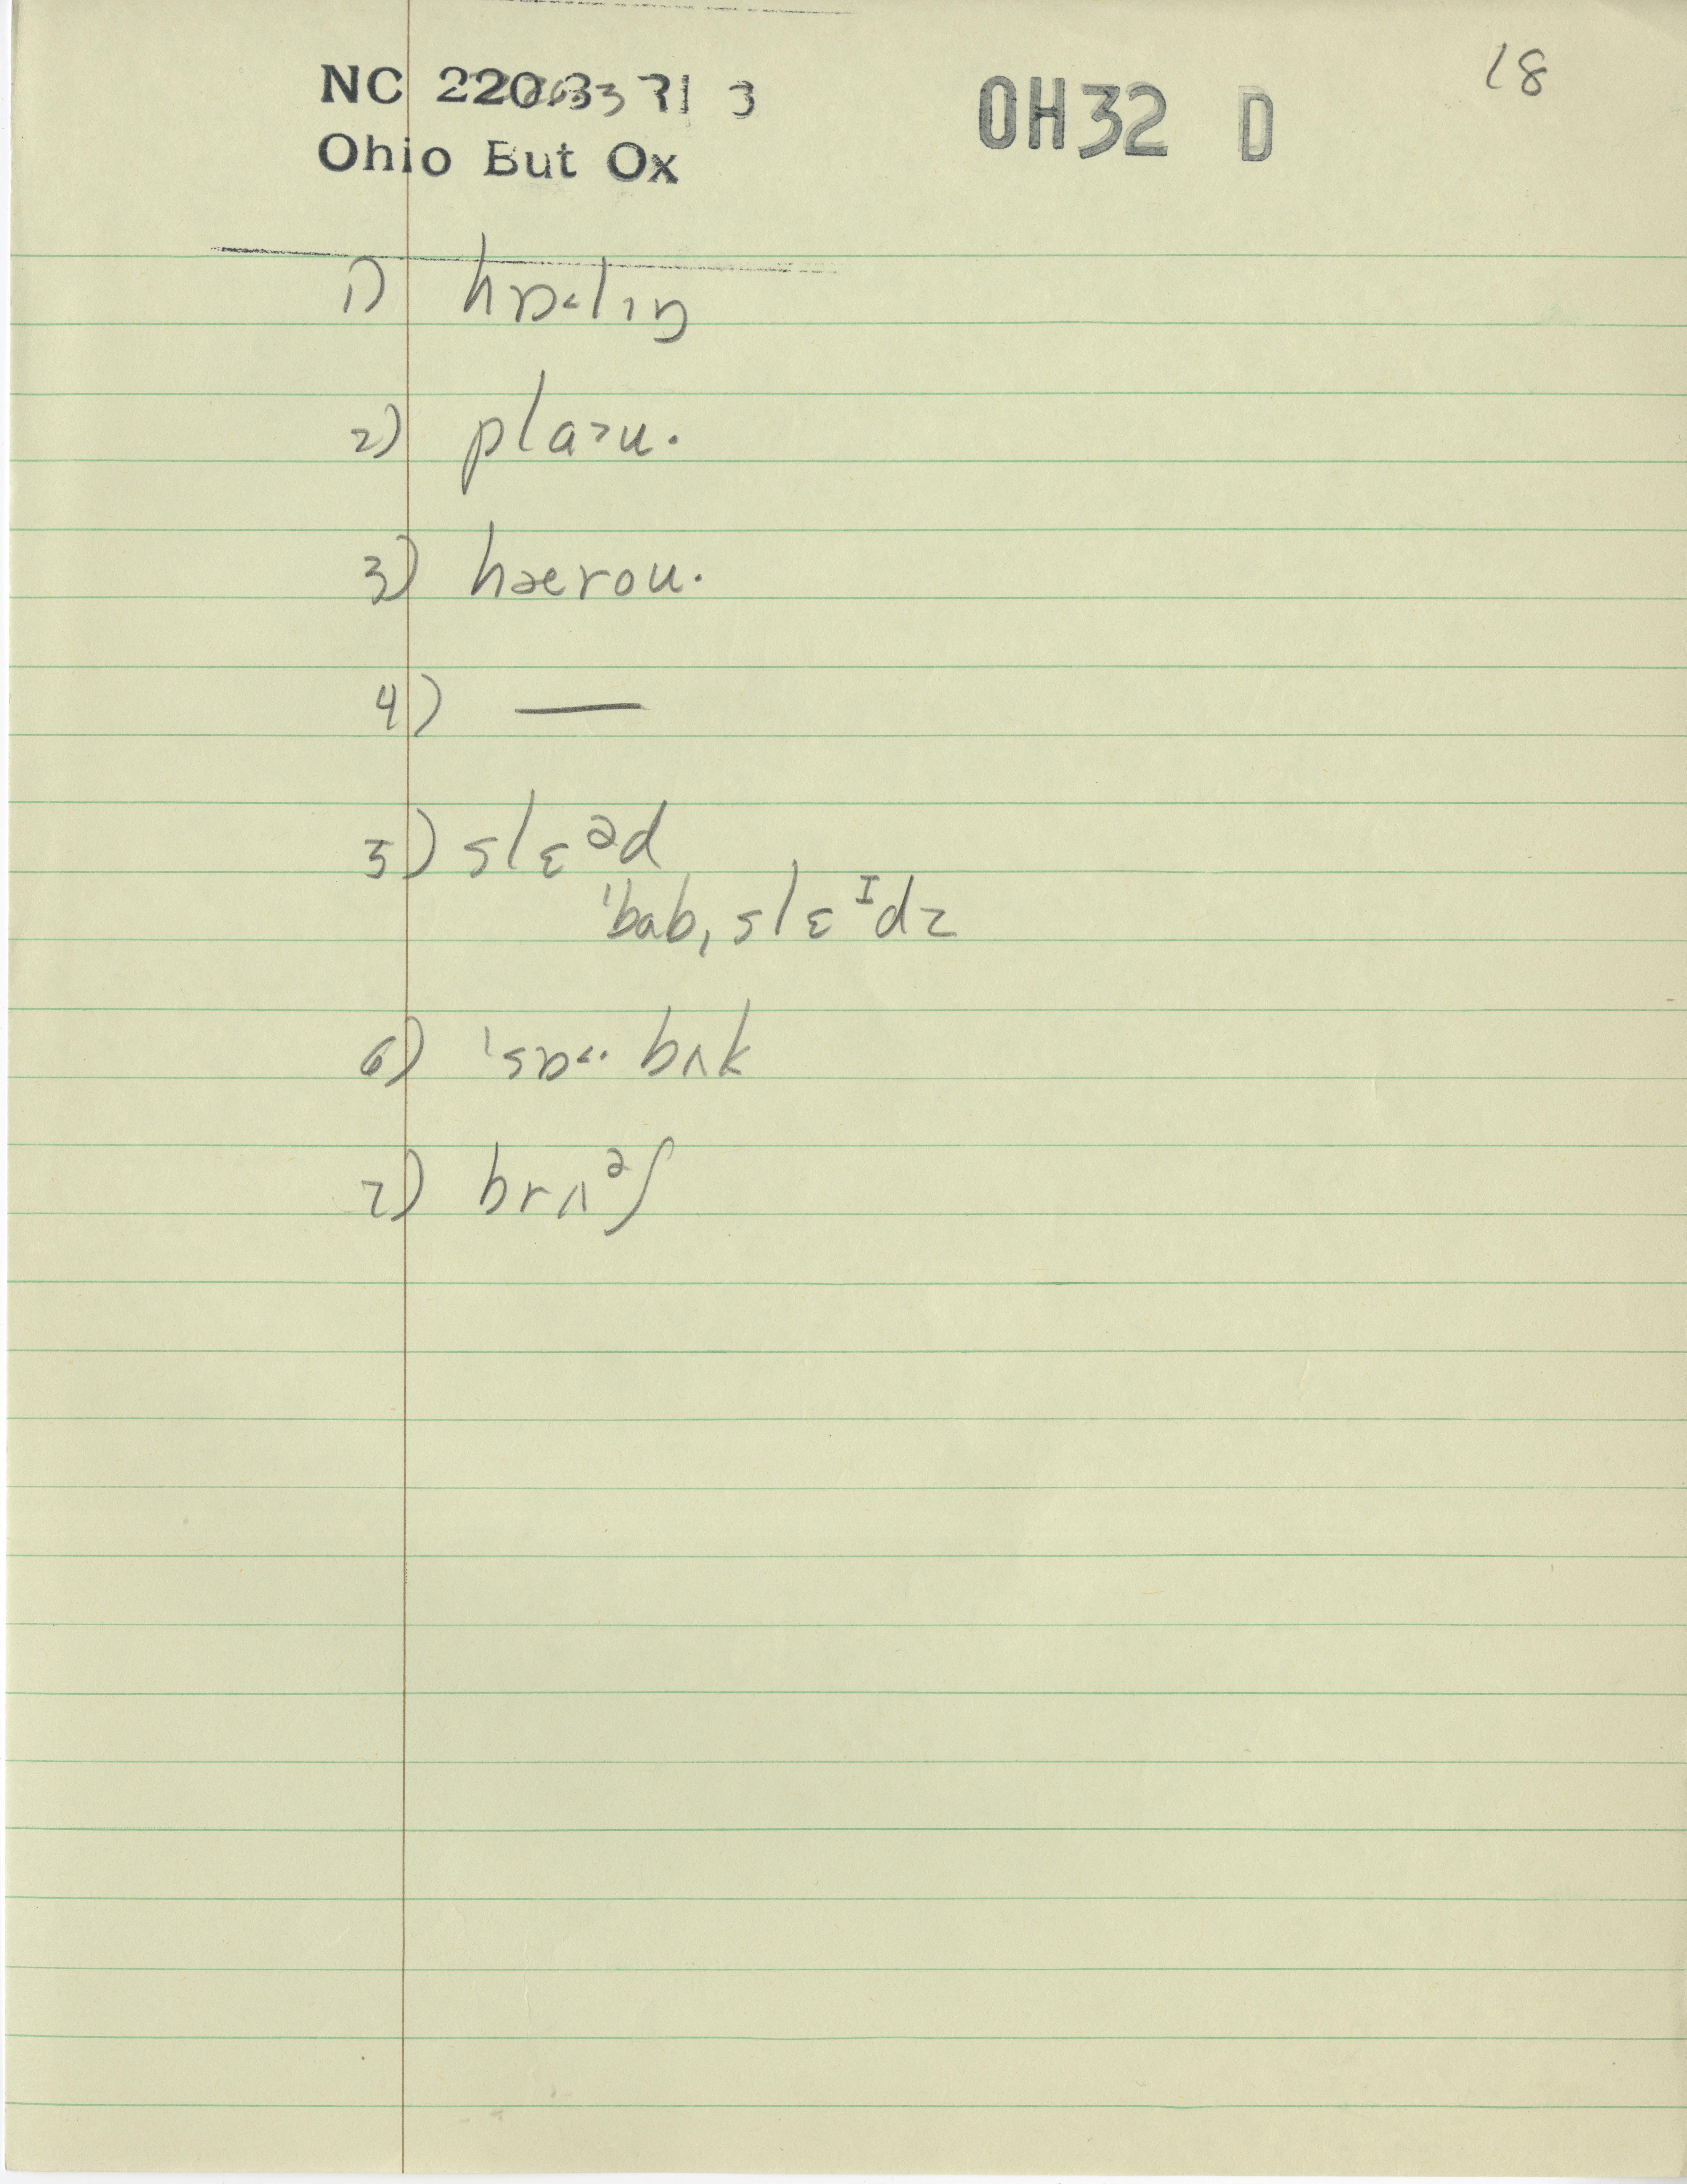 18
NC 220.3
Ohio But Ox
OH32 D
1) hɒ˂lɪŋ
2) plaɜu.
3) hærou.
4) —
5) slɛᵊd
ˈbabˌslɛᴵdz
6) ˈsɒ˂· bʌk
7) brʌᵊʃ